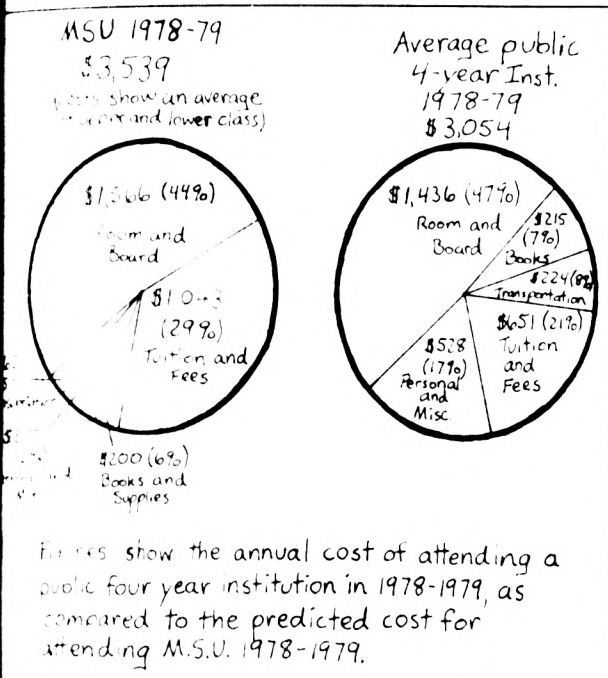 MSU 1978-79
$3,539
show an average
and lower class)
$1,566 (44%)
Room and
Board
(29%)
Tuition and
Fees
$200 (6%)
Books and
Supplies
Average public
4-year Inst.
1978-79
$3,054
$1,436 (47%)
Room and
Board
$215
(7%)
Books
$224 (8%)
Transportation
$651 (21%)
Tuition
and
Fees
$528
(17%)
Personal
and
Misc.
Figures show the annual cost of attending a
public four year institution in 1978-1979, as
compared to the predicted cost for
attending M.S.U. 1978-1979.